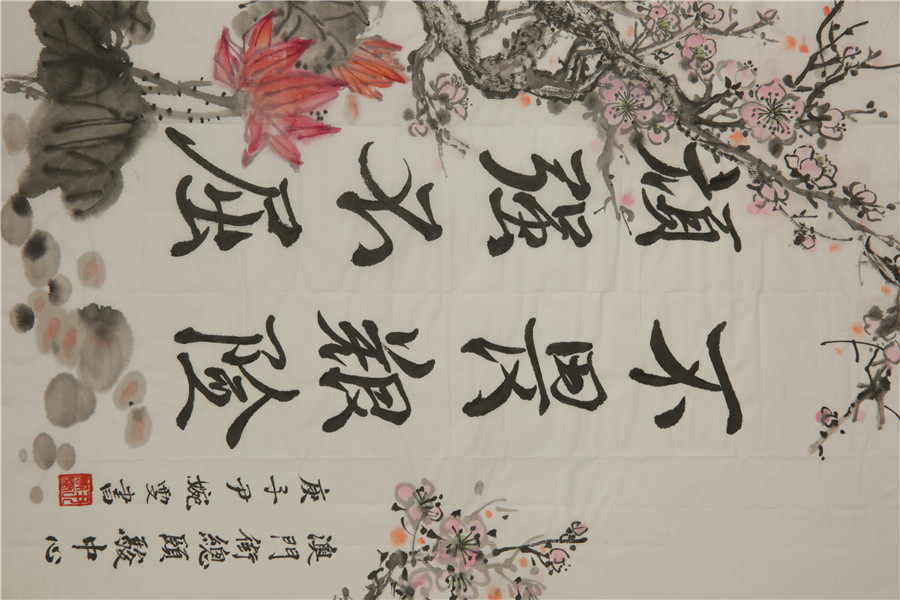 頑強不屈
不畏艱險
庚子尹婉雯書
澳門街總頤駿中心